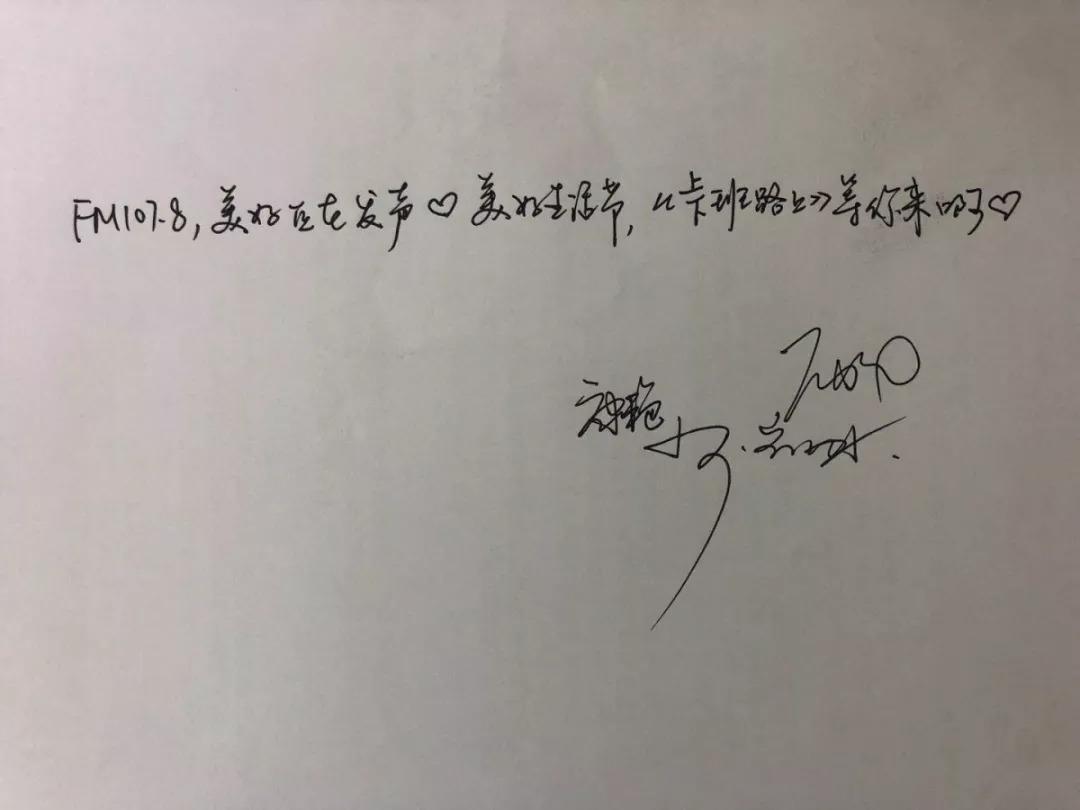 FM107.8,美好正在发声♡美好生活节,《卡班路上》等你来啊♡